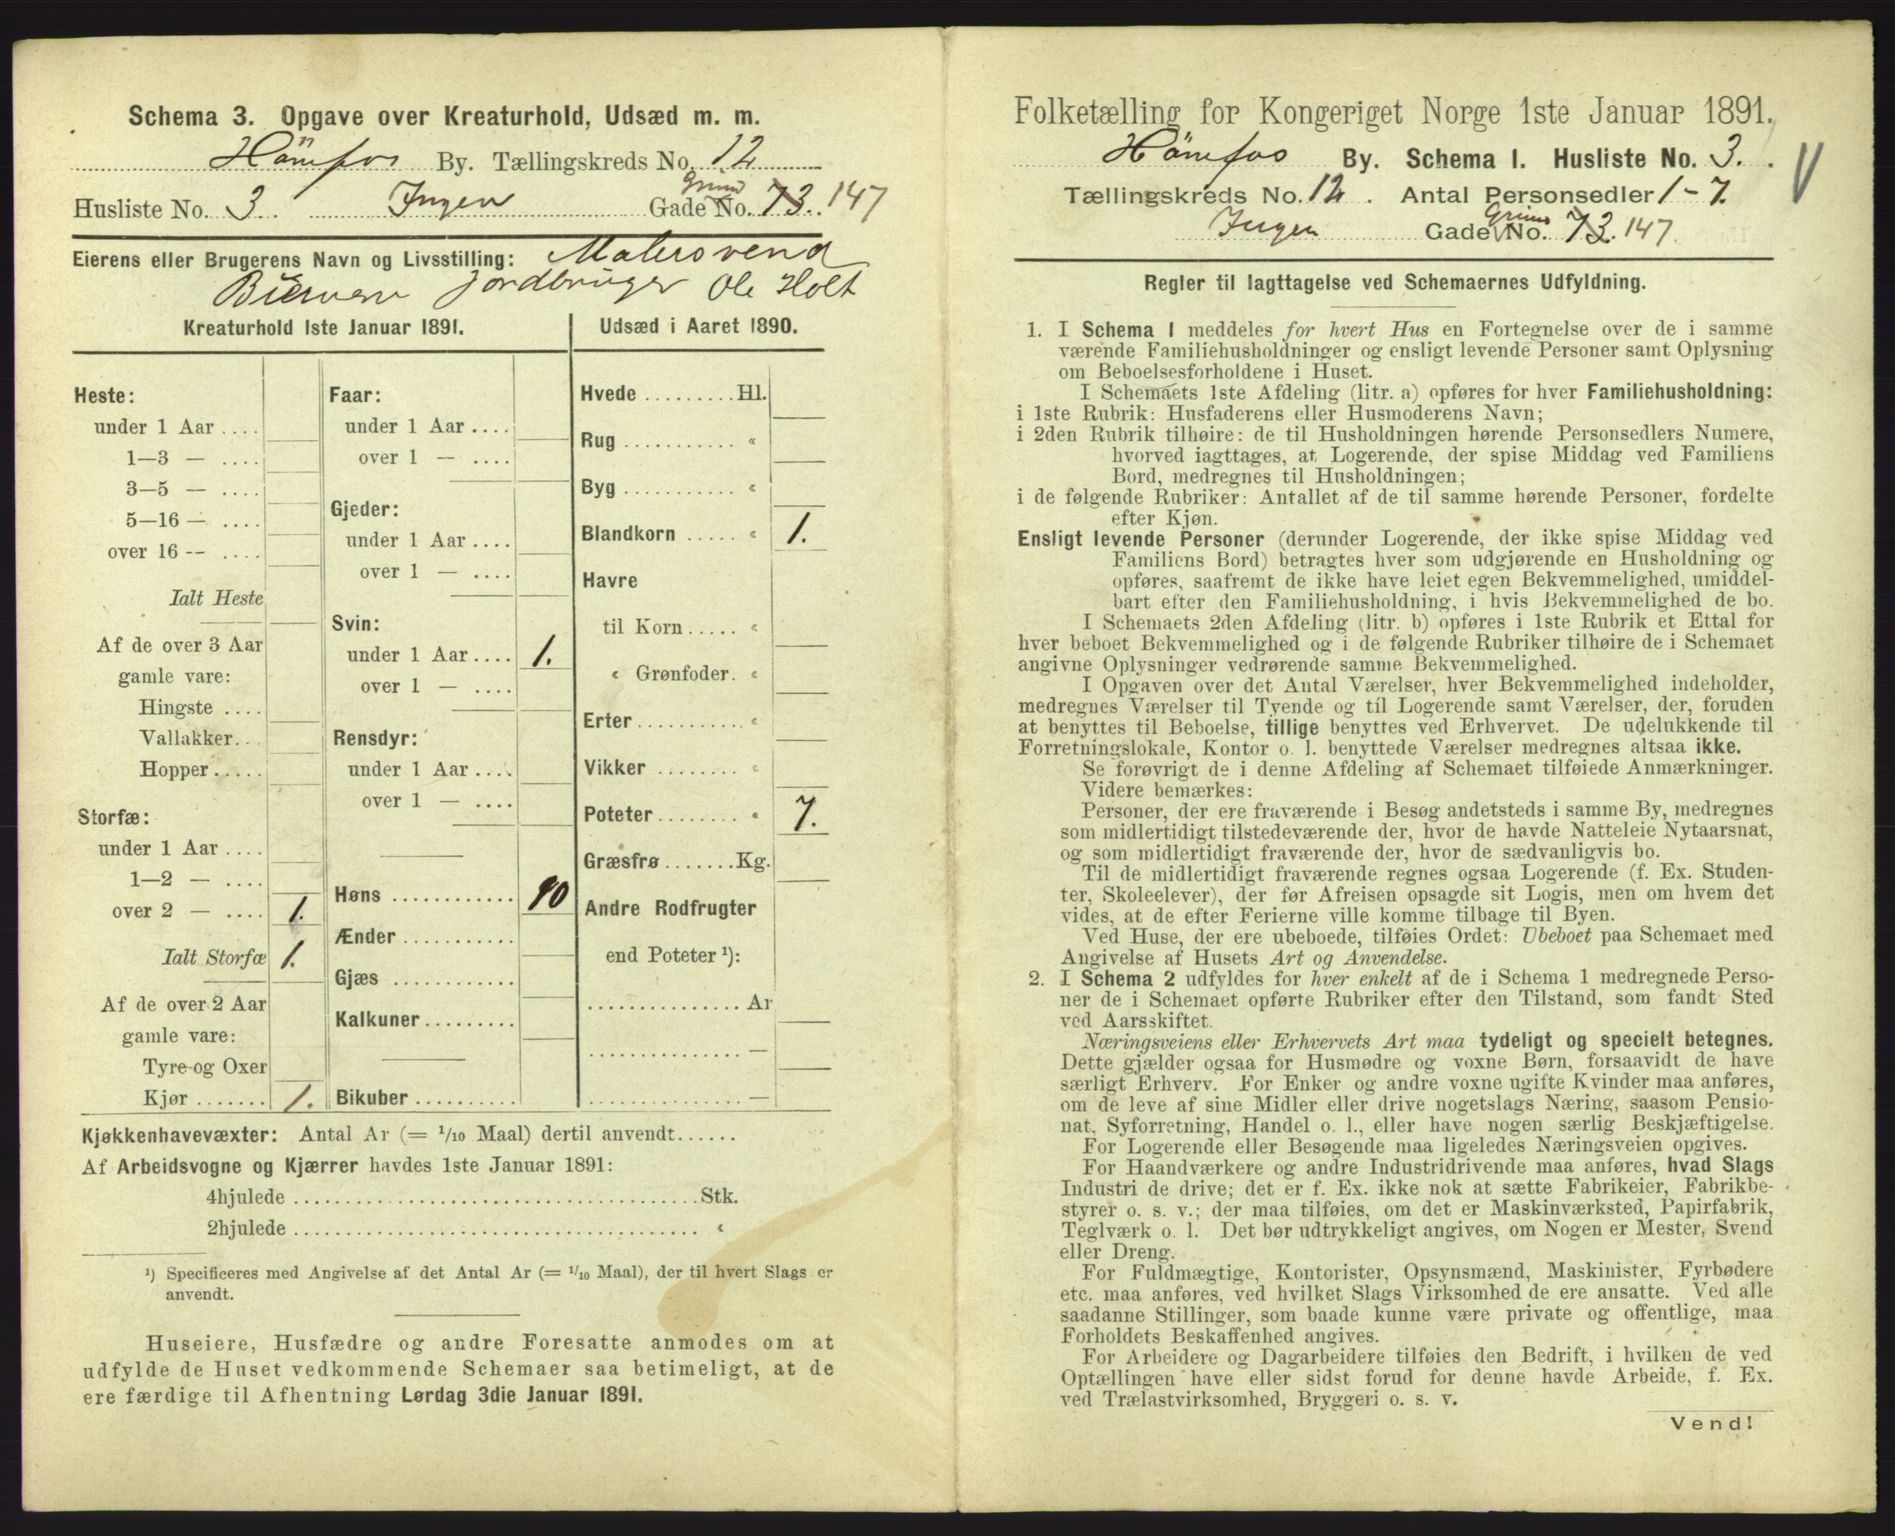 Schema 3. Opgave over Kreaturhold, Udsæd m. m.
Hönefos By. Tællingskreds No. 12
Husliste No. 3. Ingen Gade No. 73. 147
Grund
Eierens eller Brugerens Navn og Livsstilling: Malersvend
Jordbruger Ole Holt
Kreaturhold 1ste Januar 1891.
Heste:
under 1 Aar ....
1—3 — ....
3—5 — ....
5—16 — ....
over 16 — ....
Ialt Heste
Af de over 3 Aar
gamle vare:
Hingste ....
Vallakker...
Hopper.....
Storfæ:
under 1 Aar ....
1—2 — ....
over 2 — .... 1.
Ialt Storfæ 1.
Af de over 2 Aar
gamle vare:
Tyre og Oxer
Kjør ....... 1.
Faar:
under 1 Aar ....
over 1 — ....
Gjeder:
under 1 Aar ....
over 1 — ....
Svin:
under 1 Aar .... 1.
over 1 — ....
Rensdyr:
under 1 Aar ....
over 1 — ....
Høns ............ 10
Ænder ...........
Gjæs ............
Kalkuner .........
Bikuber ..........
Udsæd i Aaret 1890.
Hvede ......... Hl.
Rug ........... «
Byg ........... «
Blandkorn ..... « 1.
Havre
til Korn ..... «
« Grønfoder. «
Erter .......... «
Vikker ......... «
Poteter ........ « 7.
Græsfrø ....... Kg.
Andre Rodfrugter
end Poteter ¹):
............... Ar
............... —
............... —
Kjøkkenhavevæxter: Antal Ar (= 1/10 Maal) dertil anvendt......
Af Arbeidsvogne og Kjærrer havdes 1ste Januar 1891:
4hjulede ........................................ Stk.
2hjulede ........................................ «
¹) Specificeres med Angivelse af det Antal Ar (= 1/10 Maal), der til hvert Slags er
anvendt.
Huseiere, Husfædre og andre Foresatte anmodes om at
udfylde de Huset vedkommende Schemaer saa betimeligt, at de
ere færdige til Afhentning Lørdag 3die Januar 1891.
Folketælling for Kongeriget Norge 1ste Januar 1891.
Hönefos By. Schema 1. Husliste No. 3.
Tællingskreds No. 12. Antal Personsedler 1-7.
Grund
Ingen Gade No. 73. 147.
Regler til Iagttagelse ved Schemaernes Udfyldning.
1. I Schema 1 meddeles for hvert Hus en Fortegnelse over de i samme
værende Familiehusholdninger og ensligt levende Personer samt Oplysning
om Beboelsesforholdene i Huset.
I Schemaets 1ste Afdeling (litr. a) opføres for hver Familiehusholdning:
i 1ste Rubrik: Husfaderens eller Husmoderens Navn;
i 2den Rubrik tilhøire: de til Husholdningen hørende Personsedlers Numere,
hvorved iagttages, at Logerende, der spise Middag ved Familiens
Bord, medregnes til Husholdningen;
i de følgende Rubriker: Antallet af de til samme hørende Personer, fordelte
efter Kjøn.
Ensligt levende Personer (derunder Logerende, der ikke spise Middag ved
Familiens Bord) betragtes hver som udgjørende en Husholdning og
opføres, saafremt de ikke have leiet egen Bekvemmelighed, umiddel-
bart efter den Familiehusholdning, i hvis Bekvemmelighed de bo.
I Schemaets 2den Afdeling (litr. b) opføres i 1ste Rubrik et Ettal for
hver beboet Bekvemmelighed og i de følgende Rubriker tilhøire de i Schemaet
angivne Oplysninger vedrørende samme Bekvemmelighed.
I Opgaven over det Antal Værelser, hver Bekvemmelighed indeholder,
medregnes Værelser til Tyende og til Logerende samt Værelser, der, foruden
at benyttes til Beboelse, tillige benyttes ved Erhvervet. De udelukkende til
Forretningslokale, Kontor o. l. benyttede Værelser medregnes altsaa ikke.
Se forøvrigt de i denne Afdeling af Schemaet tilføiede Anmærkninger.
Videre bemærkes:
Personer, der ere fraværende i Besøg andetsteds i samme By, medregnes
som midlertidigt tilstedeværende der, hvor de havde Natteleie Nytaarsnat,
og som midlertidigt fraværende der, hvor de sædvanligvis bo.
Til de midlertidigt fraværende regnes ogsaa Logerende (f. Ex. Studen-
ter, Skoleelever), der før Afreisen opsagde sit Logis, men om hvem det
vides, at de efter Ferierne ville komme tilbage til Byen.
Ved Huse, der ere ubeboede, tilføies Ordet: Ubeboet paa Schemaet med
Angivelse af Husets Art og Anvendelse.
2. I Schema 2 udfyldes for hver enkelt af de i Schema 1 medregnede Perso-
ner de i Schemaet opførte Rubriker efter den Tilstand, som fandt Sted
ved Aarsskiftet.
Næringsveiens eller Erhvervets Art maa tydeligt og specielt betegnes.
Dette gjælder ogsaa for Husmødre og voxne Børn, forsaavidt de have
særligt Erhverv. For Enker og andre voxne ugifte Kvinder maa anføres,
om de leve af sine Midler eller drive nogetslags Næring, saasom Pensio-
nat, Syforretning, Handel o. l., eller have nogen særlig Beskjæftigelse.
For Logerende eller Besøgende maa ligeledes Næringsveien opgives.
For Haandværkere og andre Industridrivende maa anføres, hvad Slags
Industri de drive; det er f. Ex. ikke nok at sætte Fabrikeier, Fabrikbe-
styrer o. s. v.; der maa tilføies, om det er Maskinværksted, Papirfabrik,
Teglværk o. l. Det bør udtrykkeligt angives, om Nogen er Mester, Svend
eller Dreng.
For Fuldmægtige, Kontorister, Opsynsmænd, Maskinister, Fyrbødere
etc. maa anføres, ved hvilket Slags Virksomhed de ere ansatte. Ved alle
saadanne Stillinger, som baade kunne være private og offentlige, maa
Forholdets Beskaffenhed angives.
For Arbeidere og Dagarbeidere tilføies den Bedrift, i hvilken de ved
Optællingen have eller sidst forud for denne havde Arbeide, f. Ex.
ved Trælastvirksomhed, Bryggeri o. s. v.
Vend!